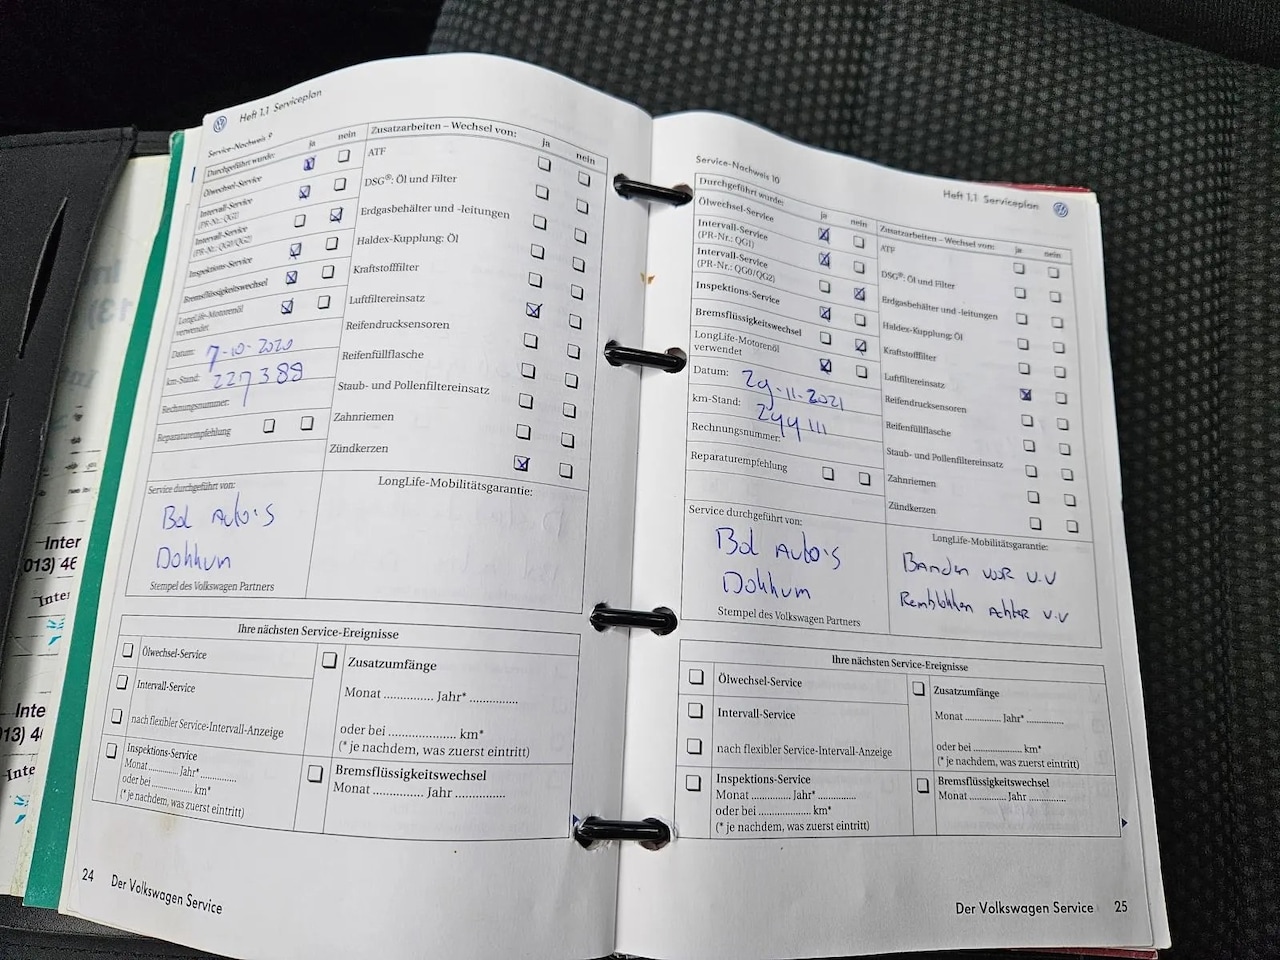 Heft 1.1 Serviceplan
Service-Nachweis 9
Durchgeführt wurde: ja nein
Ölwechsel-Service
Intervall-Service
(PR-Nr.: QG1)
Intervall-Service
(PR-Nr.: QG0/QG2)
Inspektions-Service
Bremsflüssigkeitswechsel
LongLife-Motorenöl
verwendet
Datum: 7-10-2020
km-Stand: 227388
Rechnungsnummer:
Reparaturempfehlung
Zusatzarbeiten – Wechsel von: ja nein
ATF
DSG®: Öl und Filter
Erdgasbehälter und -leitungen
Haldex-Kupplung: Öl
Kraftstofffilter
Luftfiltereinsatz
Reifendrucksensoren
Reifenfüllflasche
Staub- und Pollenfiltereinsatz
Zahnriemen
Zündkerzen
Service durchgeführt von:
Bol Auto's
Dokkum
Stempel des Volkswagen Partners
LongLife-Mobilitätsgarantie:
Ihre nächsten Service-Ereignisse
Ölwechsel-Service
Intervall-Service
nach flexibler Service-Intervall-Anzeige
Inspektions-Service
Monat .......... Jahr* ............
oder bei .................... km*
(* je nachdem, was zuerst eintritt)
Zusatzumfänge
Monat ............... Jahr* ...............
oder bei ..................... km*
(* je nachdem, was zuerst eintritt)
Bremsflüssigkeitswechsel
Monat ............... Jahr ...............
24 Der Volkswagen Service
Service-Nachweis 10
Heft 1.1 Serviceplan
Durchgeführt wurde: ja nein
Ölwechsel-Service
Intervall-Service
(PR-Nr.: QG1)
Intervall-Service
(PR-Nr.: QG0/QG2)
Inspektions-Service
Bremsflüssigkeitswechsel
LongLife-Motorenöl
verwendet
Datum: 29-11-2021
km-Stand: 244111
Rechnungsnummer:
Reparaturempfehlung
Zusatzarbeiten – Wechsel von: ja nein
ATF
DSG®: Öl und Filter
Erdgasbehälter und -leitungen
Haldex-Kupplung: Öl
Kraftstofffilter
Luftfiltereinsatz
Reifendrucksensoren
Reifenfüllflasche
Staub- und Pollenfiltereinsatz
Zahnriemen
Zündkerzen
Service durchgeführt von:
Bol Auto's
Dokkum
Stempel des Volkswagen Partners
LongLife-Mobilitätsgarantie:
Banden voor v.v
Remblokken Achter v.v
Ihre nächsten Service-Ereignisse
Ölwechsel-Service
Intervall-Service
nach flexibler Service-Intervall-Anzeige
Inspektions-Service
Monat ............ Jahr* ............
oder bei .................... km*
(* je nachdem, was zuerst eintritt)
Zusatzumfänge
Monat ............ Jahr* ............
oder bei .................... km*
(* je nachdem, was zuerst eintritt)
Bremsflüssigkeitswechsel
Monat ............ Jahr ............
Der Volkswagen Service 25